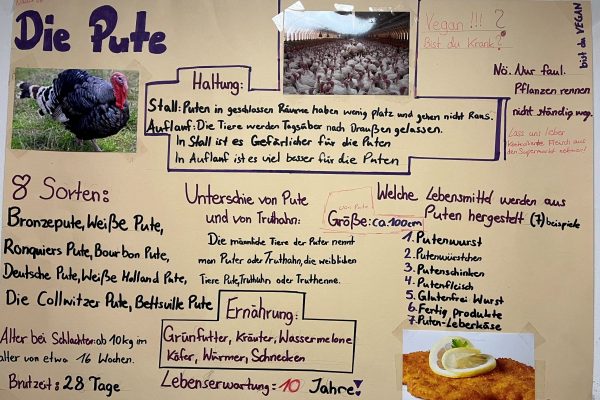 Die Pute
Vegan !!! ?
Bist du Krank?
bist du VEGAN
Nö. Nur faul.
Pflanzen rennen
nicht ständig weg.
Lass uns lieber
Kontrollierte Fleisch aus
den Supermarkt nehmen!
Haltung:
Stall: Puten in geschlossen Räume haben wenig platz und gehen nicht Raus.
Auflauf: Die Tiere werden Tagsüber nach Draußen gelassen.
In Stall ist es Gefärlicher für die Puten
In Auflauf ist es viel besser für die Puten
8 Sorten:
Bronzepute, Weiße Pute,
Ronquiers Pute, Bourbon Pute,
Deutsche Pute, Weiße Holland Pute,
Die Collwitzer Pute, Bettsville Pute
Alter bei Schlachten: ab 10kg im
alter von etwa 16 Wochen.
Brutzeit: 28 Tage
Unterschie von Pute
und von Truthahn:
Die männliche Tiere der Puter nennt
man Puter oder Truthahn, die weiblichen
Tiere Pute, Truthuhn oder Truthenne.
Ernährung:
Grünfutter, Kräuter, Wassermelone
Käfer, Würmer, Schnecken
Lebenserwartung: 10 Jahre!
von Pute
Größe: ca. 100cm
Welche Lebensmittel werden aus
Puten hergestellt (7) beispiele
1. Putenwurst
2. Putenwürstchen
3. Putenschinken
4. Putenfleisch
5. Glutenfrei Wurst
6. Fertig produkte
7. Puten-Leberkäse